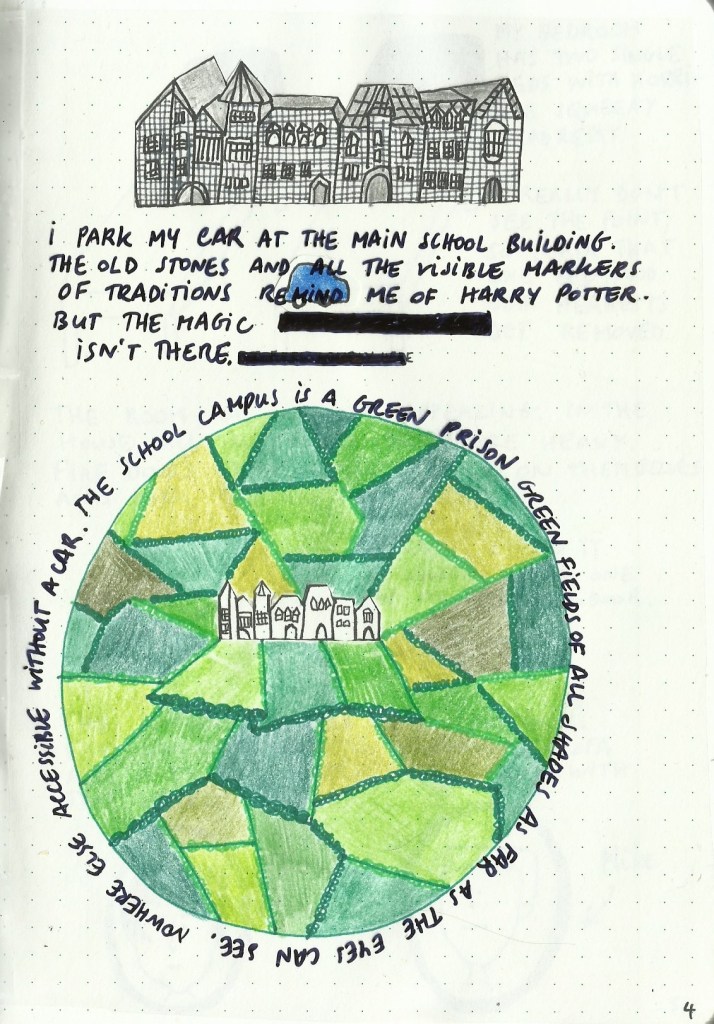 i PARK MY CAR AT THE MAIN SCHOOL BUILDING.
THE OLD STONES AND ALL THE ViSiBLE MARKERS
OF TRADITIONS REMIND ME OF HARRY POTTER.
BUT THE MAGIC
ISN'T THERE.
THE SCHOOL CAMPUS iS A GREEN PRISON. GREEN FIELDS OF ALL SHADES AS FAR AS THE EYES CAN SEE. NOWHERE ELSE ACCESSIBLE WITHOUT A CAR.
4